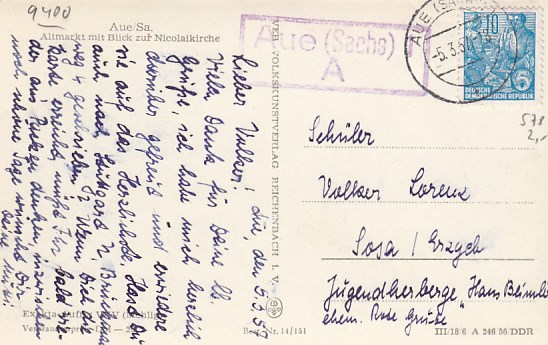 9400
Aue/Sa.
Altmarkt mit Blick zur Nicolaikirche
Aue (Sachs)
A
AUE (SACHS)
-5.3.57
10
DEUTSCHE
DEMOKRATISCHE REPUBLIK
578
2,-
VEB VOLKSKUNSTVERLAG REICHENBACH i. V.
Aue, den 5.3.57
Lieber Volker!
Vielen Dank für Deine lb.
Grüße, ich habe mich herzlich
darüber gefreut und erwidere
sie auf das Herzlichste. Hast Du
auch nach
geschrieben? Wenn Dich die
Karte erreicht, mußt Ihr bald wie-
der ans denken, inzwischen
noch schöne Tage wünscht Dir
Deine Mutti
Schüler
Volker Lorenz
Sosa / Erzgeb
Jugendherberge "Hans Beimler"
ehem. Rote Grube
Best.-Nr. 14/151
III/18/6 A 246/56/DDR